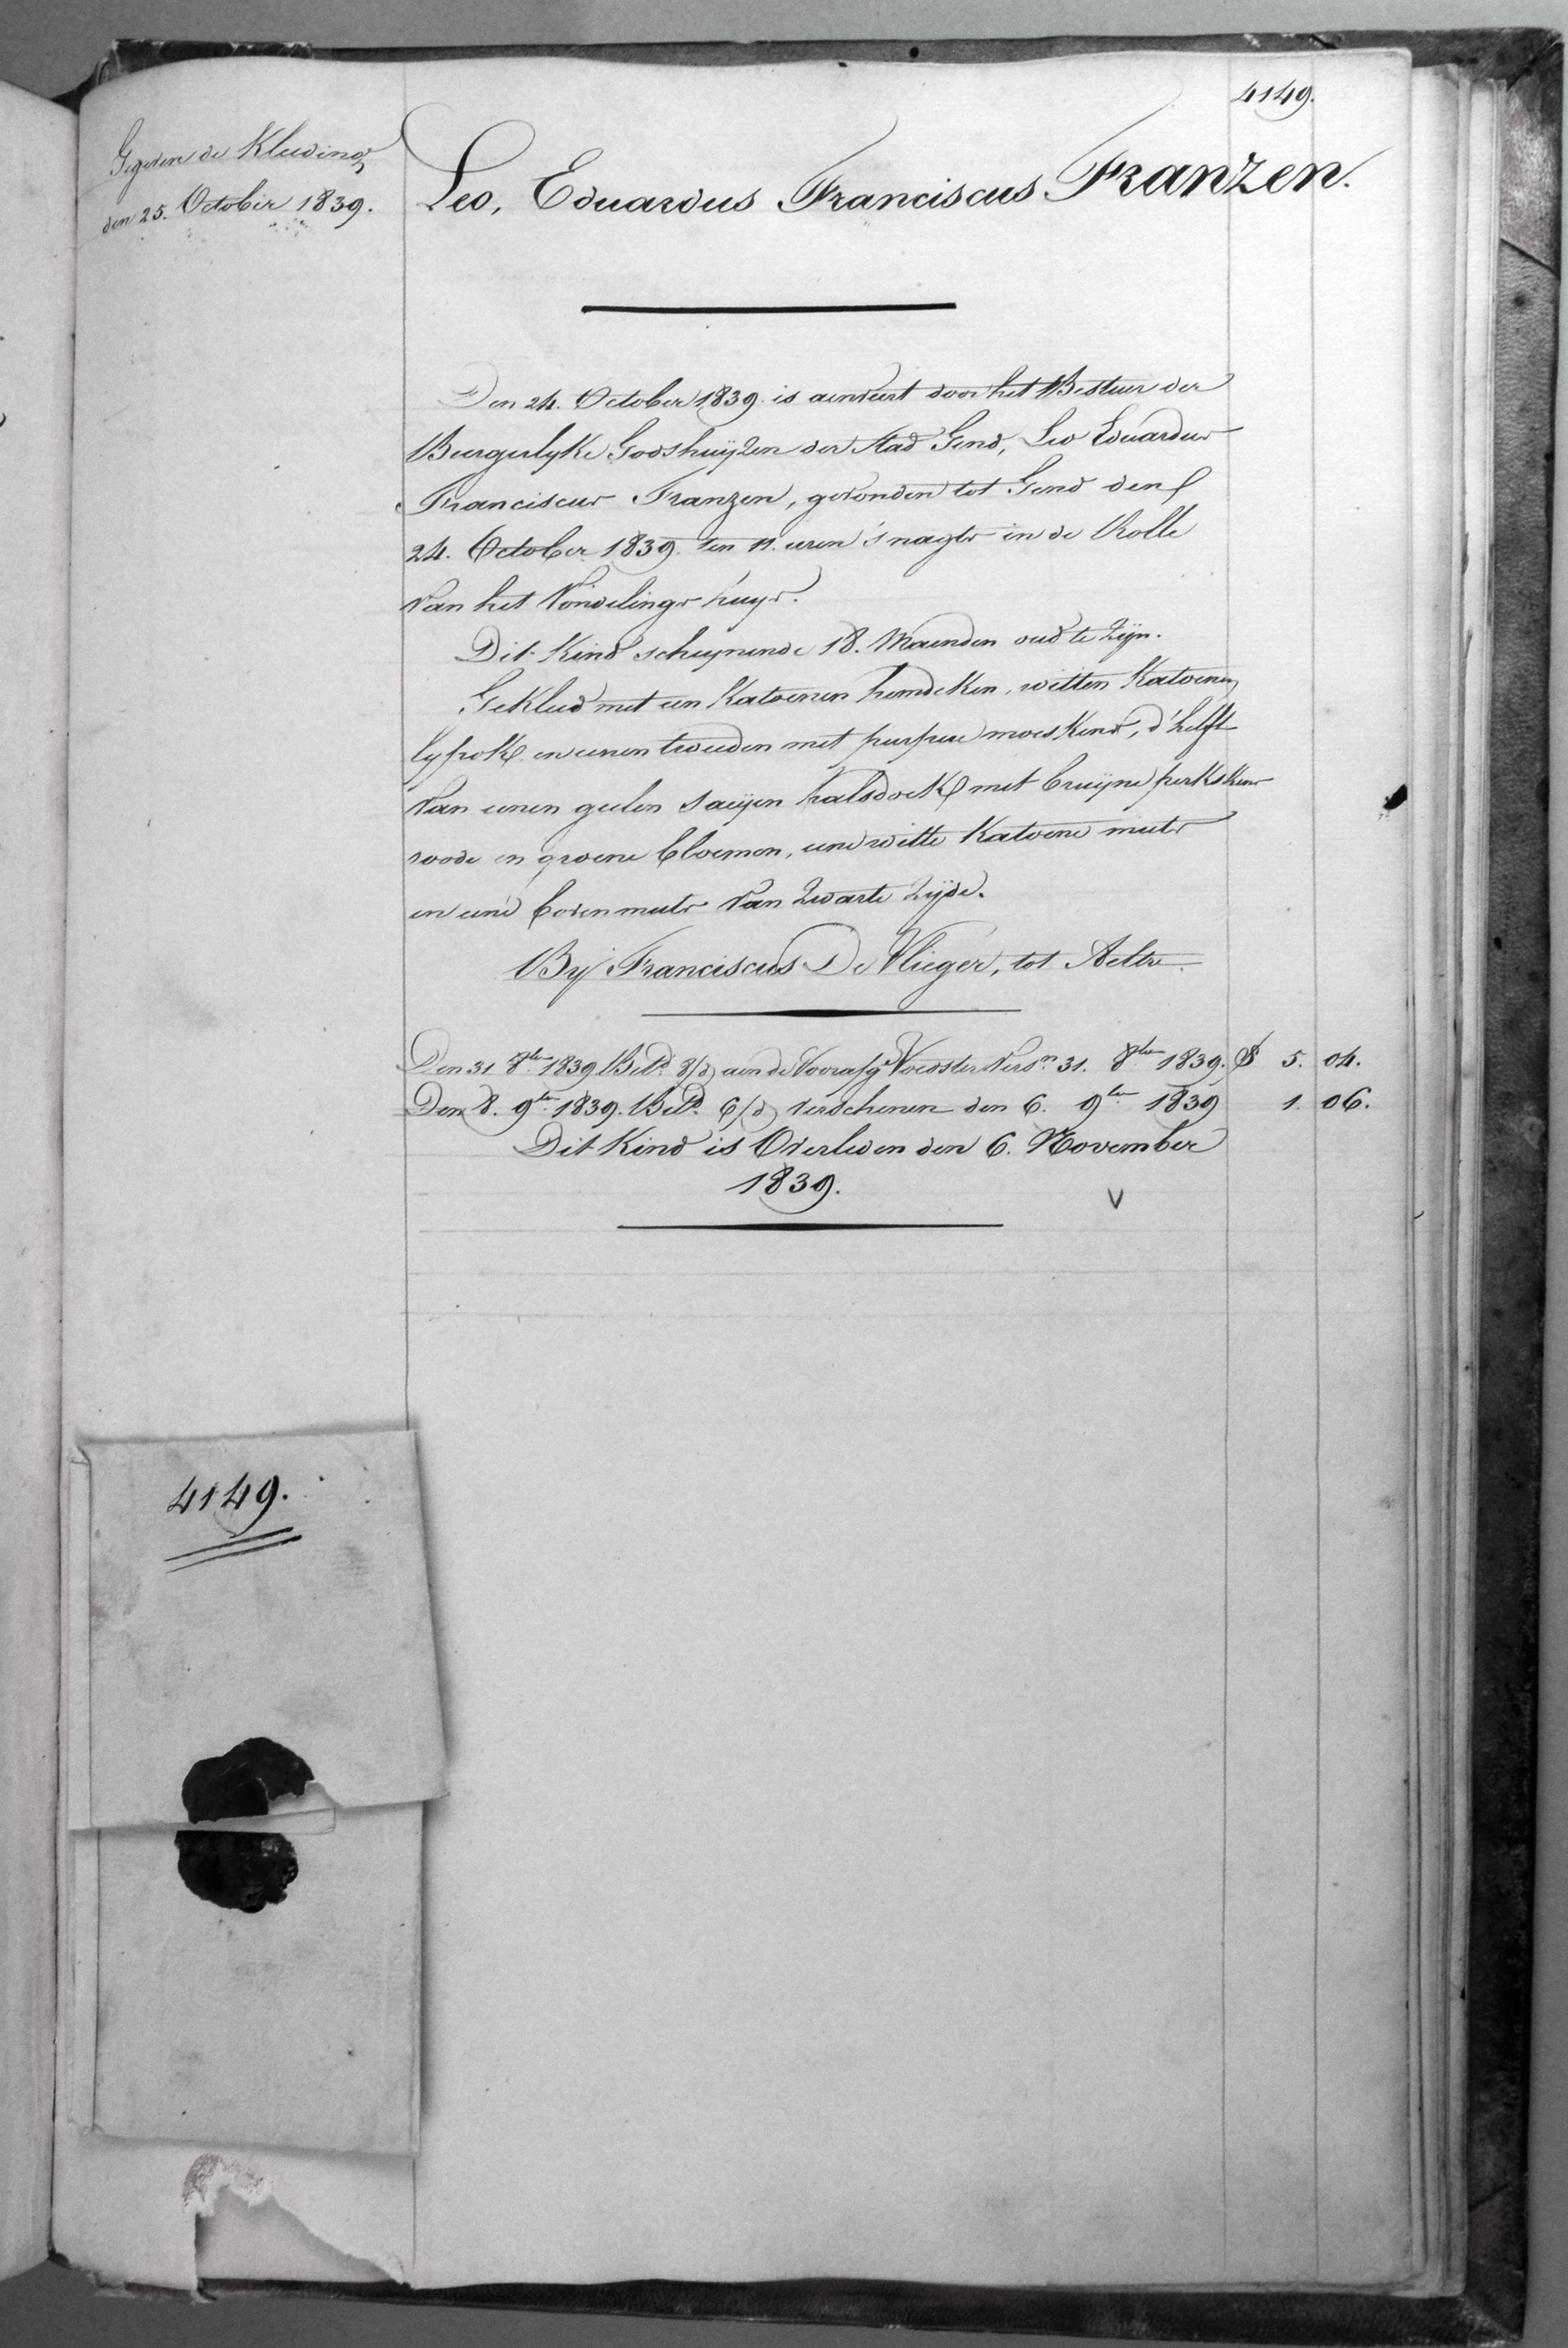 4149.
Gegeven de Kleeding
den 25. October 1839.
Leo, Eduardus Franciscus Franzen.
Den 24. October 1839. is aenveert door het Bestuur der
Burgerlyke Godshuyzen der Stad Gend, Leo Eduardus
Franciscus Franzen, gevonden tot Gend den
24. October 1839. ten 11. uren 's nagts in de Rolle
Van het Vondelings huys.
Dit Kind schynende 18. Maenden oud te zyn.
Gekleed met een Katoenen hemdeken, witten Katoenen
lyfrok en eenen tweeden met purpere moeskens, d'helft
Van eenen geelen saeyen halsdoek met bruyne perkskens
roode en groene bloemen, eene witte Katoene muts
en eene boven muts Van Zwarte Zyde.
By Franciscus De Vlieger, tot Aeltre.
Den 31. 8ber 1839 Betd. 8/d aen de Voorafge Voedster Versn. 31. 8ber 1839. 5. 04.
Den 8. 9ber 1839. Betd. 6/d verschenen den 6. 9ber 1839 1. 06.
Dit Kind is Overleden den 6. November
1839.
V
4149.